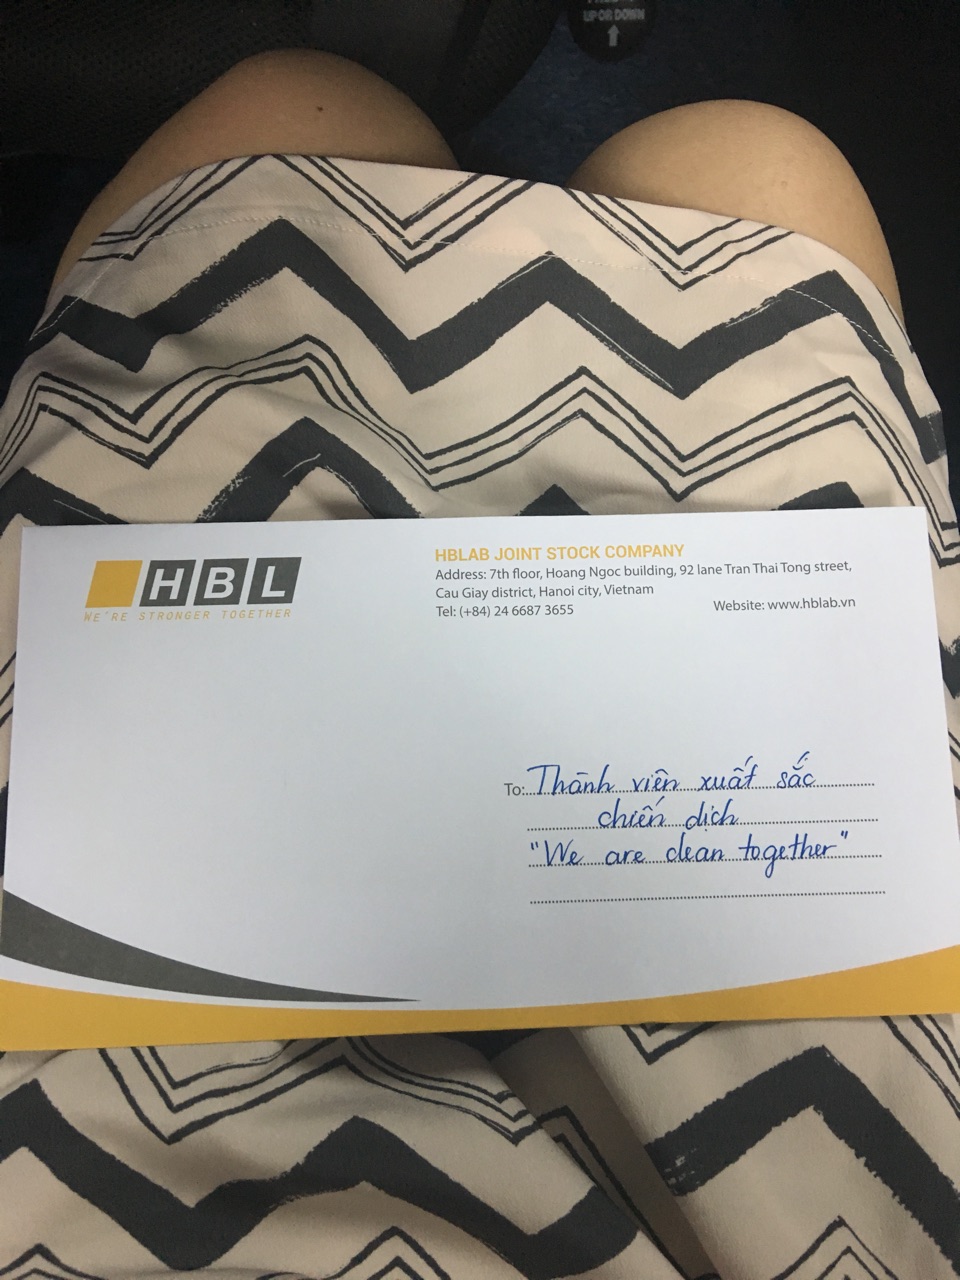 UP OR DOWN
HBL
WE'RE STRONGER TOGETHER
HBLAB JOINT STOCK COMPANY
Address: 7th floor, Hoang Ngoc building, 92 lane Tran Thai Tong street,
Cau Giay district, Hanoi city, Vietnam
Tel: (+84) 24 6687 3655 Website: www.hblab.vn
To: Thành viên xuất sắc
chiến dịch
"We are clean together"